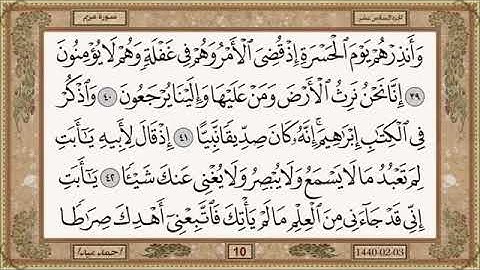 سورة مريم
الجزء السادس عشر
وَأَنذِرْهُمْ يَوْمَ ٱلْحَسْرَةِ إِذْ قُضِىَ ٱلْأَمْرُ وَهُمْ فِى غَفْلَةٍ وَهُمْ لَا يُؤْمِنُونَ
٣٩ إِنَّا نَحْنُ نَرِثُ ٱلْأَرْضَ وَمَنْ عَلَيْهَا وَإِلَيْنَا يُرْجَعُونَ ٤٠ وَٱذْكُرْ
فِى ٱلْكِتَٰبِ إِبْرَٰهِيمَ ۚ إِنَّهُۥ كَانَ صِدِّيقًا نَّبِيًّا ٤١ إِذْ قَالَ لِأَبِيهِ يَٰٓأَبَتِ
لِمَ تَعْبُدُ مَا لَا يَسْمَعُ وَلَا يُبْصِرُ وَلَا يُغْنِى عَنكَ شَيْـًٔا ٤٢ يَٰٓأَبَتِ
إِنِّى قَدْ جَآءَنِى مِنَ ٱلْعِلْمِ مَا لَمْ يَأْتِكَ فَٱتَّبِعْنِىٓ أَهْدِكَ صِرَٰطًا
10
1440-02-03